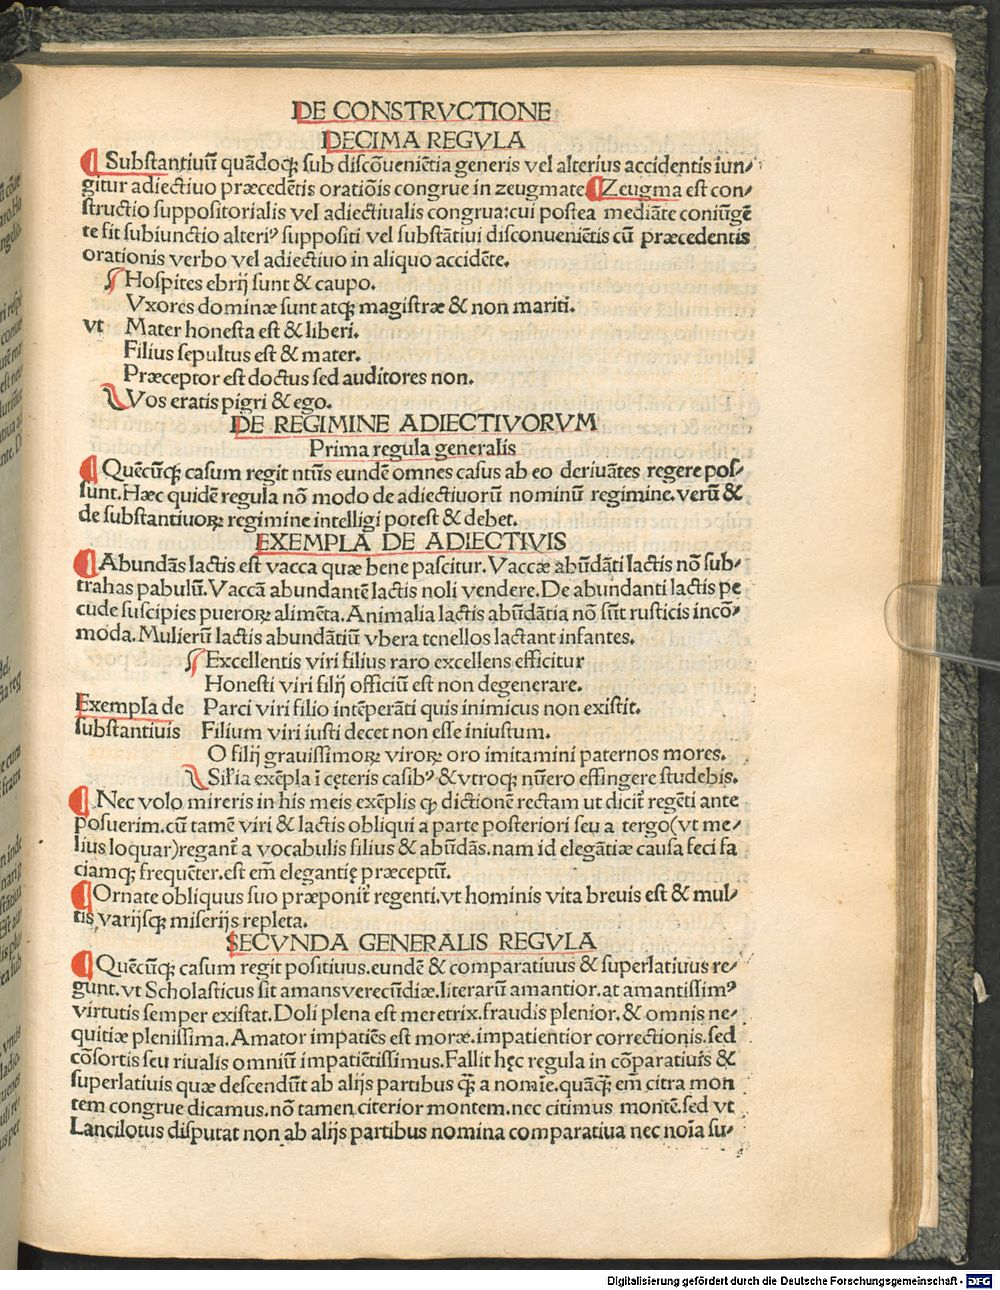 DE CONSTRVCTIONE
DECIMA REGVLA
¶ Substantiuū quādoq; sub discōueniētia generis vel alterius accidentis iun⸗
gitur adiectiuo præcedētis oratiōis congrue in zeugmate ¶ Zeugma est con⸗
structio suppositorialis vel adiectiualis congrua:cui postea mediāte coniūgē
te fit subiunctio alteriꝰ suppositi vel substātiui disconueniētis cū præcedentis
orationis verbo vel adiectiuo in aliquo accidēte.
Hospites ebrij sunt & caupo.
Vxores dominæ sunt atq; magistræ & non mariti.
vt Mater honesta est & liberi.
Filius sepultus est & mater.
Præceptor est doctus sed auditores non.
Vos eratis pigri & ego.
DE REGIMINE ADIECTIVORVM
Prima regula generalis
¶ Quēcūq; casum regit ntūs eundē omnes casus ab eo deriuātes regere pos⸗
sunt. Hæc quidē regula nō modo de adiectiuorū nominū regimine. verū &
de substantiuoꝝ regimine intelligi potest & debet.
EXEMPLA DE ADIECTIVIS
¶ Abundās lactis est vacca quæ bene pascitur. Vaccæ abūdāti lactis nō sub⸗
trahas pabulū. Vaccā abundantē lactis noli vendere. De abundanti lactis pe
cude suscipies pueroꝝ alimēta. Animalia lactis abūdātia nō sūt rusticis incō⸗
moda. Mulierū lactis abundātiū vbera tenellos lactant infantes.
Excellentis viri filius raro excellens efficitur
Honesti viri filij officiū est non degenerare.
Exempla de Parci viri filio intēperāti quis inimicus non existit.
substantiuis Filium viri iusti decet non esse iniustum.
O filij grauissimoꝝ viroꝝ oro imitamini paternos mores.
Sil'ia exēpla ī cęteris casibꝰ & vtroq; nūero effingere studebis.
¶ Nec volo mireris in his meis exēplis ꝙ dictionē rectam ut dicit̄ regēti ante
posuerim. cū tamē viri & lactis obliqui a parte posteriori seu a tergo (vt me⸗
lius loquar) regant̄ a vocabulis filius & abūdās. nam id elegātiæ causa feci fa
ciamq; frequēter. est em̄ elegantię præceptū.
¶ Ornate obliquus suo præponit̄ regenti. vt hominis vita breuis est & mul⸗
tis varijsq; miserijs repleta.
SECVNDA GENERALIS REGVLA
¶ Quēcūq; casum regit positiuus. eundē & comparatiuus & superlatiuus re⸗
gunt. vt Scholasticus sit amans verecūdiæ. literarū amantior. at amantissimꝰ
virtutis semper existat. Doli plena est meretrix. fraudis plenior. & omnis ne⸗
quitiæ plenissima. Amator impatiēs est moræ. impatientior correctionis. sed
cōsortis seu riualis omniū impatiētissimus. Fallit hęc regula in cōparatiuis &
superlatiuis quæ descendūt ab alijs partibus q̄ a nomīe. quāq; em̄ citra mon
tem congrue dicamus. nō tamen citerior montem. nec citimus montē. sed vt
Lancilotus disputat non ab alijs partibus nomina comparatiua nec noīa su⸗
Digitalisierung gefördert durch die Deutsche Forschungsgemeinschaft - DFG